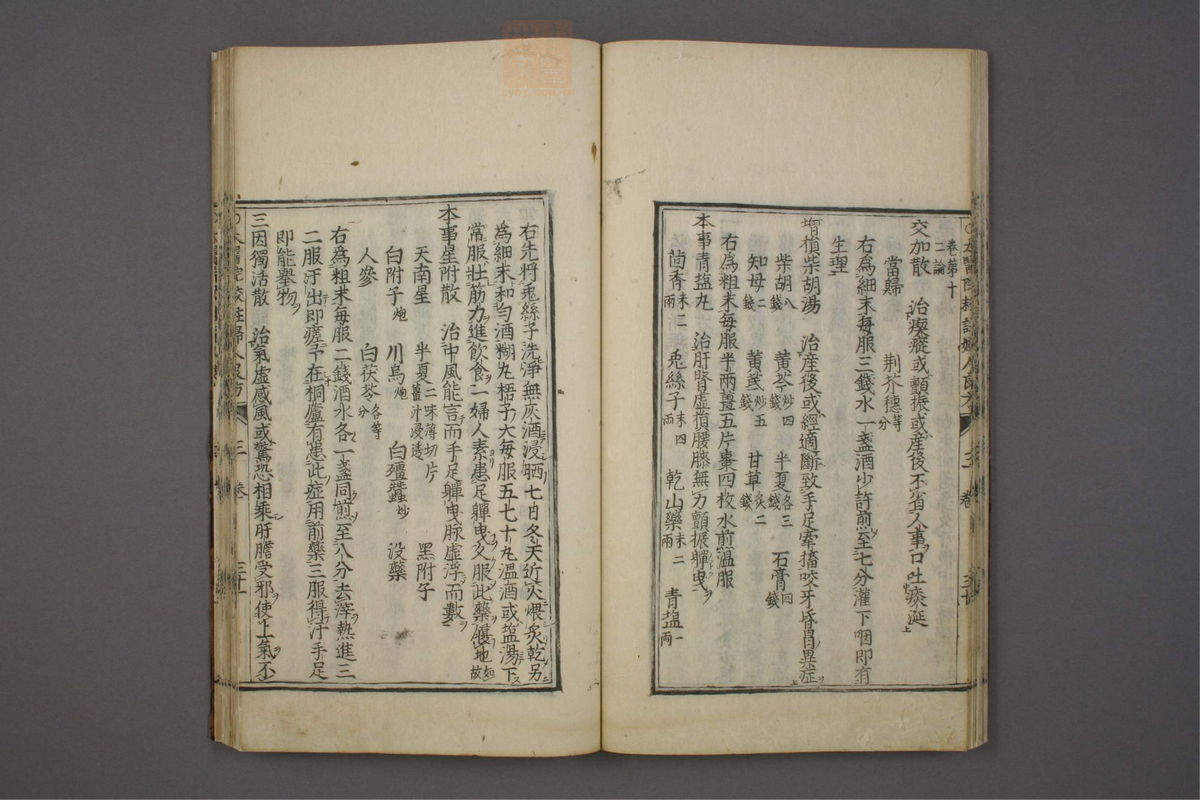 卷第十
二論
交加散　治瘈瘲或顫振或産後不省人事口吐痰涎
當歸　荆芥穗等分
右爲細末每服三錢水一盞酒少許煎至七分灌下咽即有
生理
增損柴胡湯　治産後或經適斷致手足牽搐咬牙昏冒異症
柴胡八錢　黃芩炒四錢　半夏各三錢　石膏四錢
知母二錢　黃芪炒五錢　甘草炙二錢
右爲粗末每服半兩薑五片棗四枚水煎溫服
本事青塩丸　治肝腎虛損腰膝無力顫振軃曳
茴香末三兩　兎絲子末四兩　乾山藥末二兩　青塩一兩
右先將兎絲子洗淨無灰酒浸晒七日冬天近火煨炙乾另
爲細末和勻酒糊丸梧子大每服五七十丸溫酒或塩湯下
常服壯筋力進飲食一婦人素患足軃曳久服此藥履地如故
本事星附散　治中風能言而手足軃曳脉虛浮而數
天南星　半夏二味薄切片薑汁浸透　黑附子
白附子炮　川烏炮　白殭蠶炒　没藥
人參　白茯苓各等分
右爲粗末每服二錢酒水各一盞同煎至八分去滓熱進三
二服汗出即瘥予在桐廬有患此症用前藥三服得汗手足
即能舉物
三因獨活散　治氣虛感風或驚恐相乘肝膽受邪使上氣不
三　卷　三十一